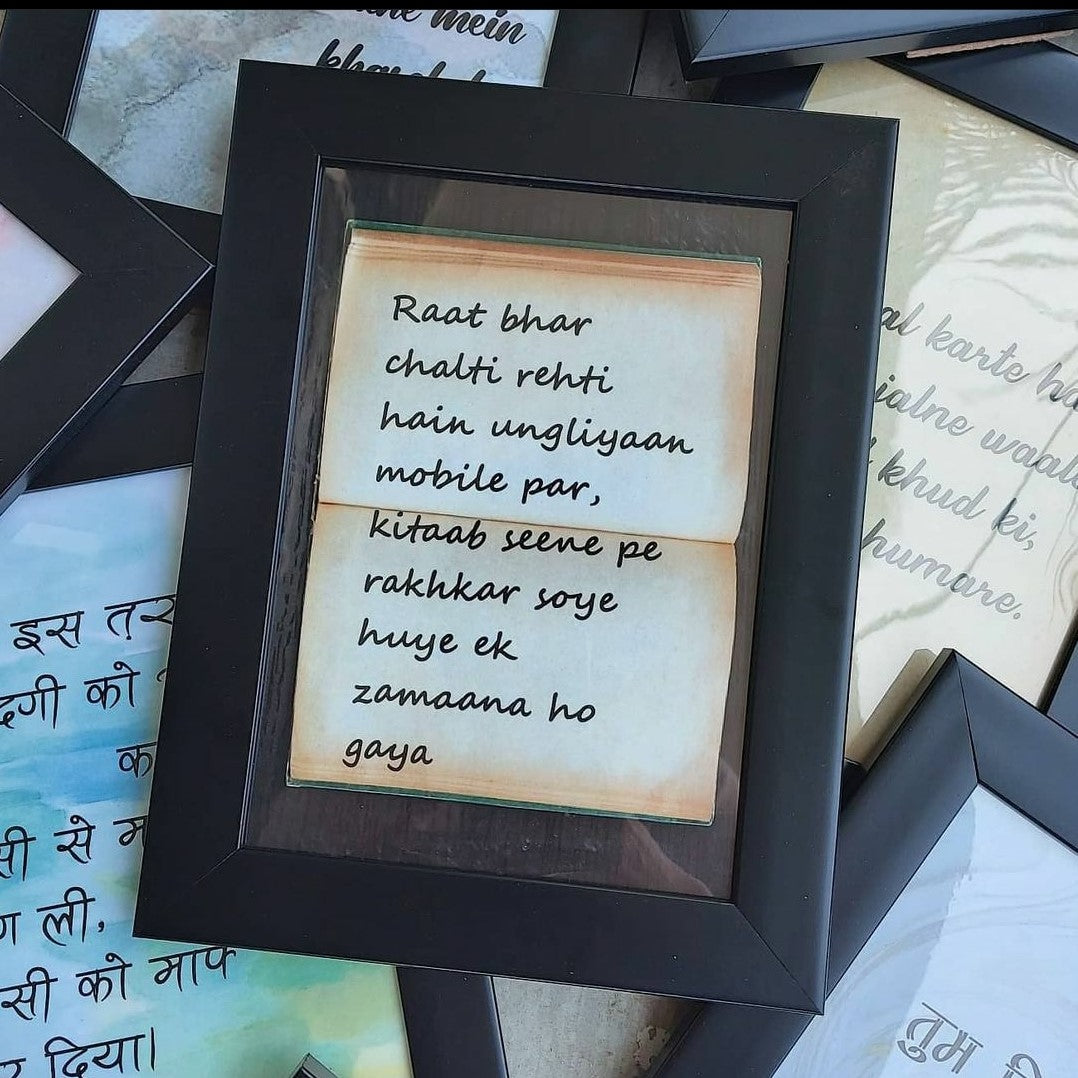 mein
Raat bhar
chalti rehti
hain ungliyaan
mobile par,
kitaab seene pe
rakhkar soye
huye ek
zamaana ho
gaya
karte
jalne
khud ki,
humare.
इस
को
से
ली,
को माफ
दिया।
तुम